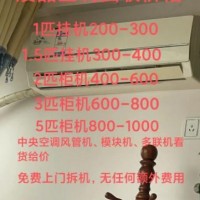 1匹挂机200-300
1.5匹挂机300-400
2匹柜机400-600
3匹柜机600-800
5匹柜机800-1000
中央空调风管机、模块机、多联机看
货给价
免费上门拆机、无任何额外费用